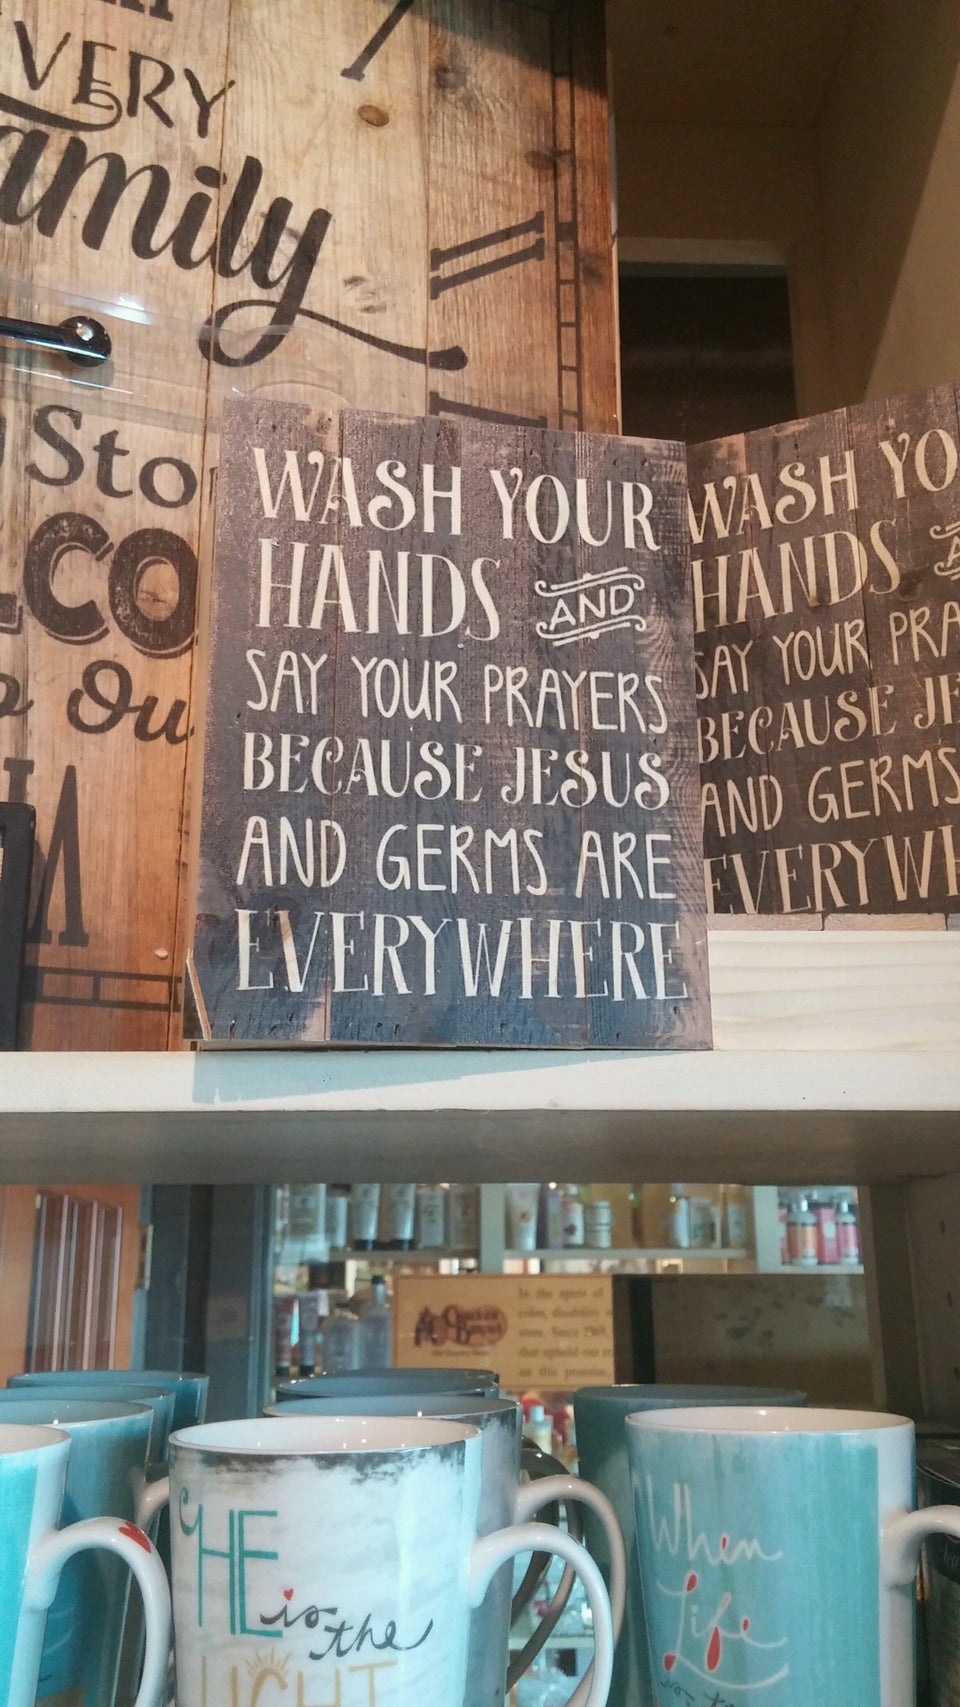 VERY
amily
Sto
LCO
Ou
WASH YOUR
HANDS AND
SAY YOUR PRAYERS
BECAUSE JESUS
AND GERMS ARE
EVERYWHERE
WASH YO
HANDS
SAY YOUR PRA
BECAUSE JE
AND GERMS
EVERYWH
Cracker
Barrel
Old Country Store
In the spirit of
color, disability
store. Since 1969,
that uphold our
on this promise.
HE
is the
LIGHT
When
Life